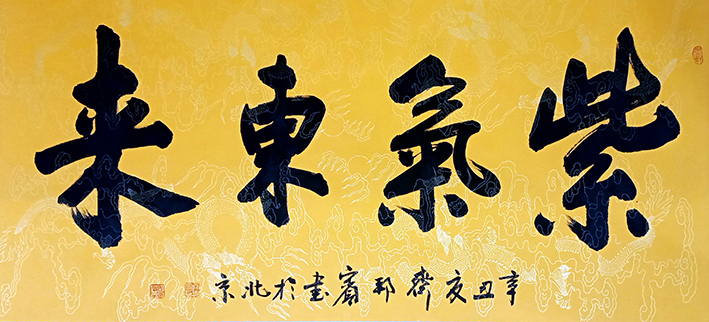 紫氣東来
辛丑夏齊邦賓書於北京